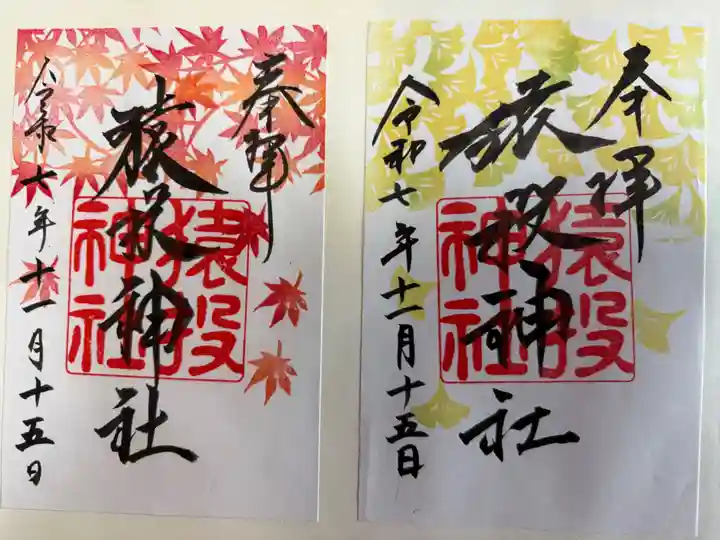 奉拝
猿投神社
猿投神社
令和七年十一月十五日
奉拝
猿投神社
猿投神社
令和七年十一月十五日